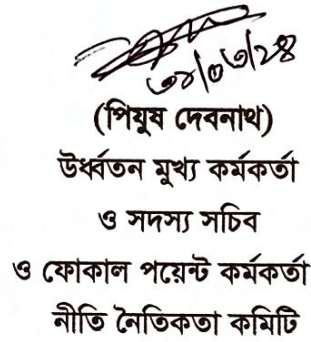 ৩০/০৬/২৪
(পিযুষ দেবনাথ)
উর্ধ্বতন মুখ্য কর্মকর্তা
ও সদস্য সচিব
ও ফোকাল পয়েন্ট কর্মকর্তা
নীতি নৈতিকতা কমিটি